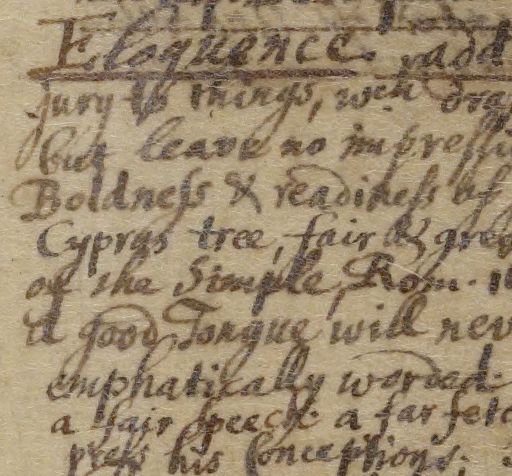 Eloquence. add
jury to things, wch dra
but leave no impressi
Boldness & readiness of
Cyprus tree, fair & gre
of the Simple, Rom. 1
a good Tongue will nev
emphatically worded.
a fair speech. a far fetc
press his Conceptions.